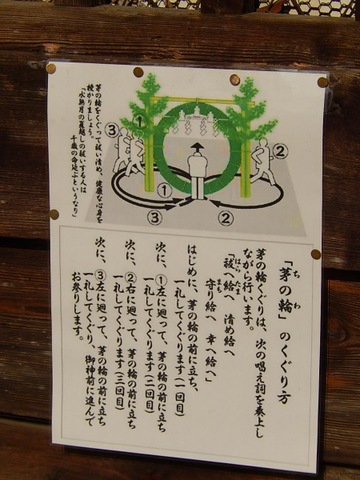 茅の輪をくぐって祓い清め、健康な心身を
授かりましょう。
「水無月の夏越しの祓いする人は
千歳の命延ぶというなり」
①
③
②
①
③
②
「茅の輪」のくぐり方
ち
わ
茅の輪くぐりは、次の唱え詞を奏上し
ながら行います。
「祓へ給へ 清め給へ
はら
たま
守り給へ 幸へ給へ」
まも
はじめに、茅の輪の前に立ち、
一礼してくぐります(一回目)
次に、①左に廻って、茅の輪の前に立ち
一礼してくぐります(二回目)
次に、②右に廻って、茅の輪の前に立ち
一礼してくぐります(三回目)
次に、③左に廻って、茅の輪の前に立ち
一礼してくぐり、御神前に進んで
お参りします。